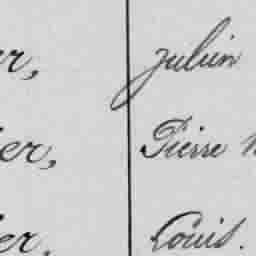 er, Julien
er, Pierre
er, Louis.